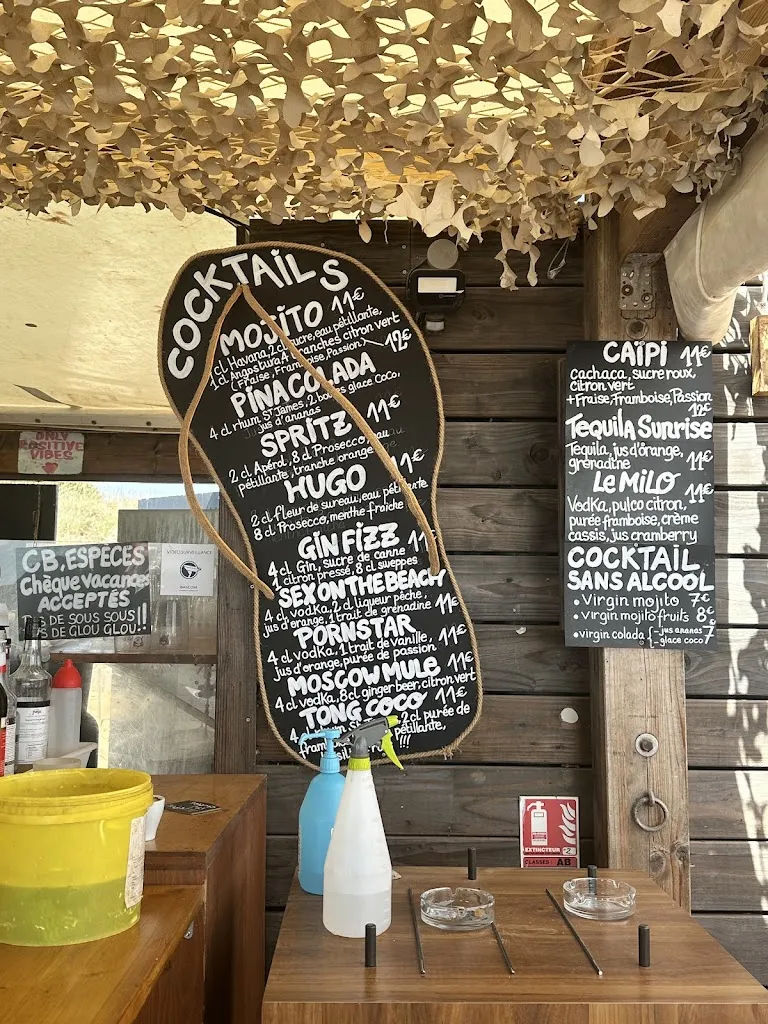 COCKTAILS
MOJITO 11€
cl Havana, 2 c sucre, eau pétillante,
1 cl Angostura, 4 tranches citron vert
(Fraise, Framboise, Passion) 12€
PINA COLADA
4 cl rhum St James, 2 boules glace coco,
jus d'ananas
SPRITZ 11€
2 cl Apérol, 8 cl Prosecco, eau
pétillante, tranche orange
HUGO 11€
2 cl fleur de sureau, eau pétillante
8 cl Prosecco, menthe fraiche
GIN FIZZ
4 cl Gin, sucre de canne 11€
1 citron pressé, 8 cl sweppes
SEX ON THE BEACH
4 cl vodka, 2 cl liqueur pêche,
jus d'orange, 1 trait de grenadine 11€
PORNSTAR
4 cl vodka, 1 trait de vanille, 11€
jus d'orange, purée de passion
MOSCOW MULE 11€
4 cl vodka, 8 cl ginger beer, citron vert
TONG COCO 11€
2 cl purée de
pétillante,
!!!
CAÏPI 11€
Cachaca, sucre roux,
citron vert
+Fraise, Framboise, Passion
12€
Tequila Sunrise
Tequila, jus d'orange,
grenadine 11€
Le MiLO 11€
Vodka, pulco citron,
purée framboise, crème
cassis, jus cramberry
COCKTAIL
SANS ALCOOL
• Virgin mojito 7€
• virgin mojito fruits 8€
• virgin colada {- jus ananas
- glace coco 7
ONLY
POSITIVE
VIBES
CB, ESPÈCES
Chèque vacances
ACCEPTÉS
PAS DE SOUS SOUS
PAS DE GLOU GLOU !!
VIDÉOSURVEILLANCE
EXTINCTEUR
CLASSES: AB